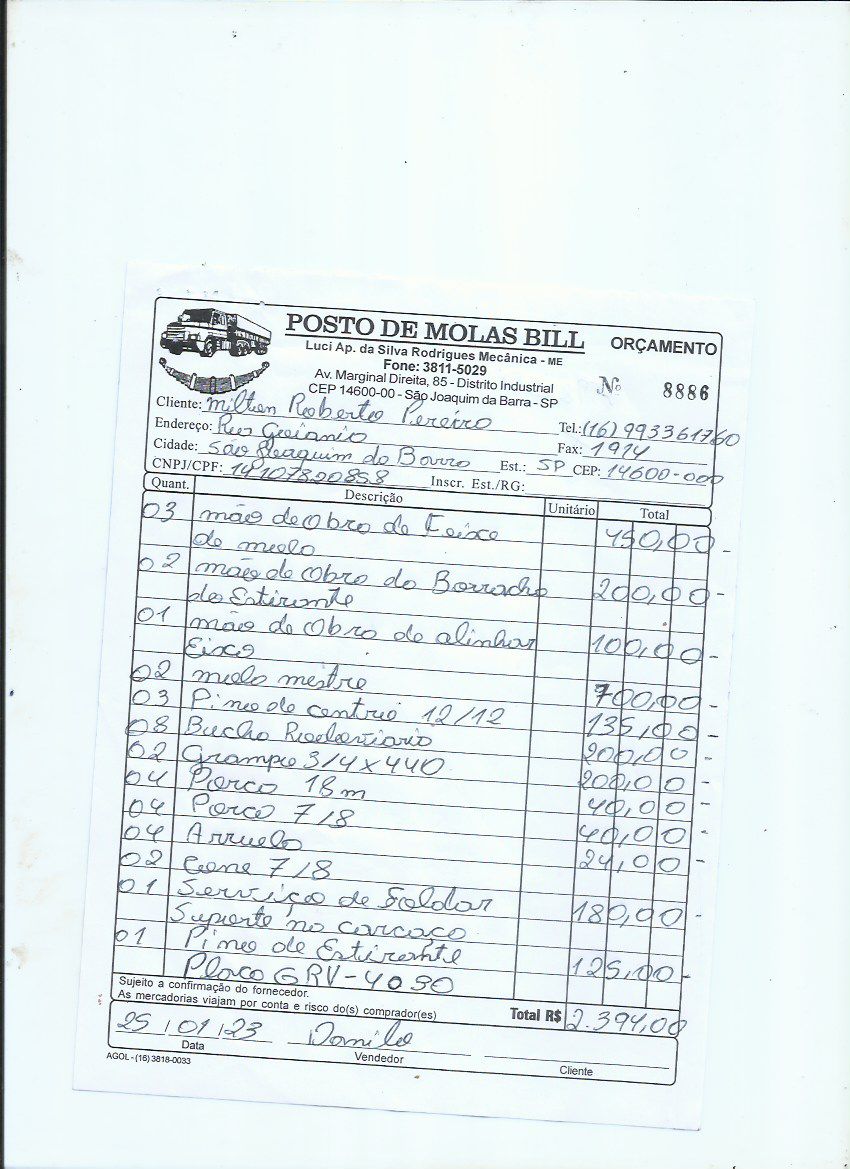 POSTO DE MOLAS BILL
ORÇAMENTO
Luci Ap. da Silva Rodrigues Mecânica - ME
Fone: 3811-5029
Av. Marginal Direita, 85 - Distrito Industrial
CEP 14600-00 - São Joaquim da Barra - SP
Nº 8886
Cliente: Milton Roberto Pereira
Tel.: (16) 993361760
Endereço: Rua Goiania 1914
Fax:
Cidade: São Joaquim da Barra Est.: SP CEP: 14600-000
CNPJ/CPF: 14107820858 Inscr. Est./RG:
Quant. Descrição Unitário Total
03 mão de Obra de Feixe 450,00 -
de mola
02 mão de Obra da Borracha 200,00 -
do Estirante
01 mão de Obra de alinhar 100,00 -
Eixo
02 mola mestre 700,00 -
03 Pino de centrio 12/12 135,00 -
08 Bucha Rodoviaria 200,00 -
02 Grampo 3/4 x 440 200,00 -
04 Porca 18m 40,00 -
04 Porca 7/8 40,00 -
04 Arruela 24,00 -
02 Cone 7/8
01 Serviço de Soldar 180,00 -
Suporte na carcaça
01 Pino de Estirante 125,00 -
Placa GRV-4090
Sujeito a confirmação do fornecedor.
As mercadorias viajam por conta e risco do(s) comprador(es)
Total R$ 2.394,00
25 / 01 / 23 Danilo
Data Vendedor Cliente
AGOL - (16) 3818-0033